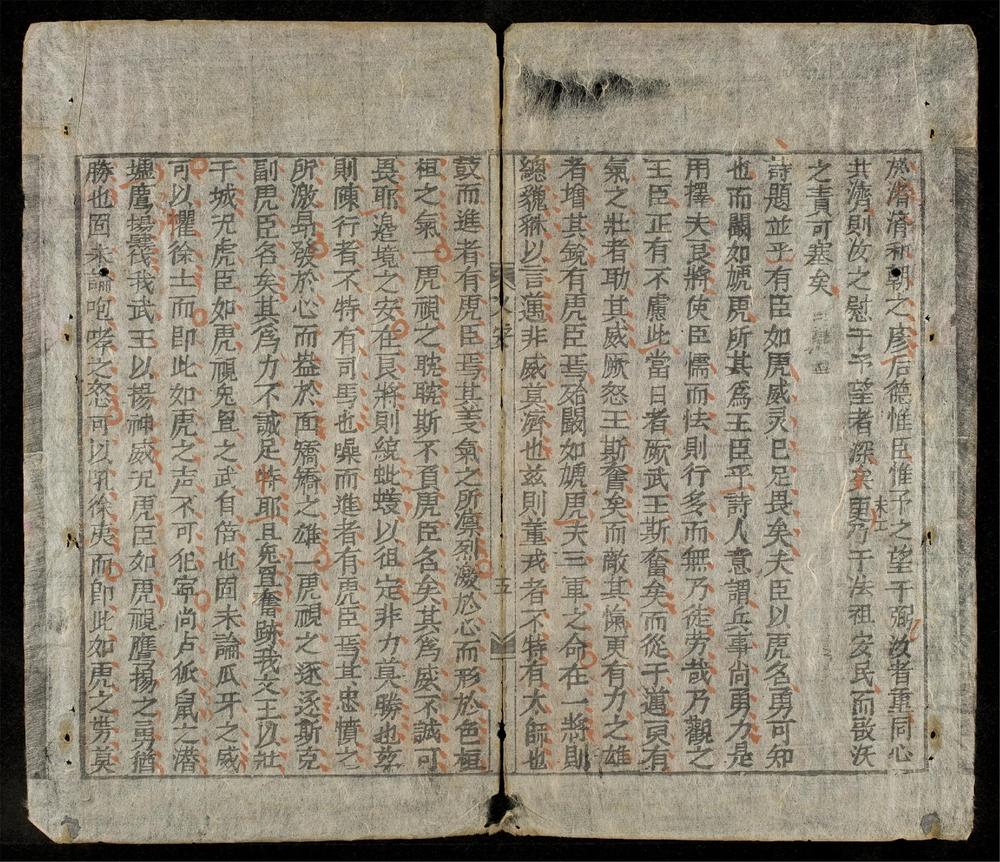 於濟濟和朝之彥后德惟臣惟予之望于弼汝者重同心
共濟則汝之慰于予望者深矣更乃于法祖安民而敬沃
之責可塞矣
詩題並乎有臣如虎威灵已足畏矣夫臣以虎名勇可知
也而闞如虓虎所其為王臣乎詩人意謂兵事尚勇力是
用擇大良將使臣懦而怯則行多而無乃徒劳哉乃觀之
王臣正有不慮此當日者厥武王斯奮矣而從于邁更有
氣之壯者助其威厥怒王斯奮矣而敵其愾更有力之雄
者增其銳有虎臣焉殆闞如虓虎夫三軍之命在一將則
總貔貅以言邁非威莫濟也兹則董戎者不特有太師也
五
鼓而進者有虎臣焉其羙氣之所凛烈激於心而形於色桓
桓之氣一虎視之耽耽斯不負虎臣名矣其為威不誠可
畏耶邉境之安在良將則統蚍蜉以徂定非力莫勝也兹
則陳行者不特有司馬也噪而進者有虎臣焉其忠憤之
所激昻發於心而益於面矯矯之雄一虎視之逐逐斯克
副虎臣名矣其為力不誠足特耶且兎罝奮跡我文王以壯
干城况虎臣如虎視兎罝之武有倍也固未論瓜牙之威
可以懼徐士而即此如虎之声不可犯寕尚卢狐鼠之潜
墟鷹揚我武王以揚神威况虎臣如虎視鷹揚之勇猶
勝也固未論咆哮之怒可以扎徐夷而即此如虎之势莫